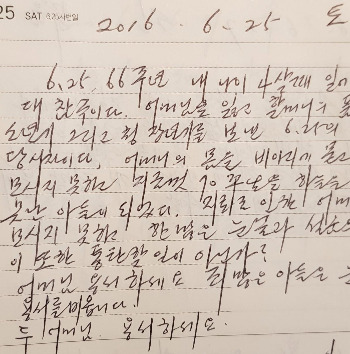 25 SAT 6.25사변일 2016. 6. 25 토
6.25, 66주년 내 나이 4살때 일어
대 참극이다. 어머님을 잃고 할머니의 품
소년기 그리고 청 장년기를 보낸 6.25의
당사자이다, 어머니의 몸을 비아리에 묻고
모시지 못하고 지금껏 70 하늘을
못난 아들이 되었다. 인한 어머
모시지 못하고 한많은 눈물과
이 또한 통탄할 일이 아닌가?
어머님 용서하세요 죄많은 아들은
용서를 비옵니다
두 어머님 용서하세요.